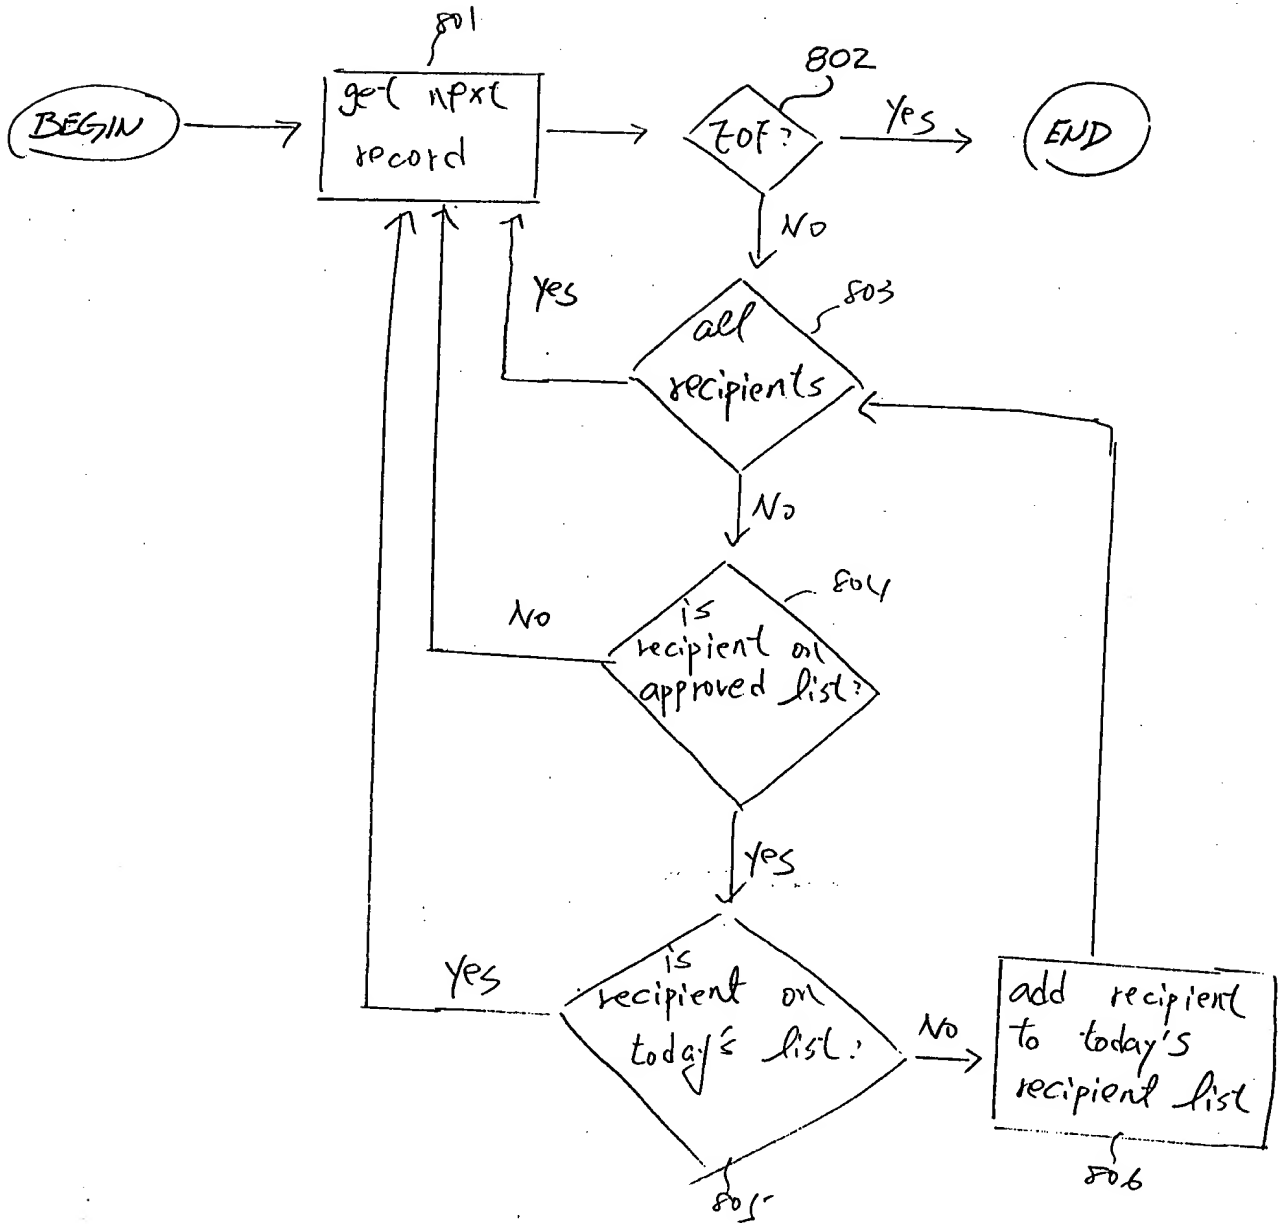 801
802
BEGIN
get next
record
EOF?
Yes
END
No
Yes
803
all
recipients
No
804
No
is
recipient on
approved list?
Yes
Yes
is
recipient on
today's list?
No
add recipient
to today's
recipient list
805
806